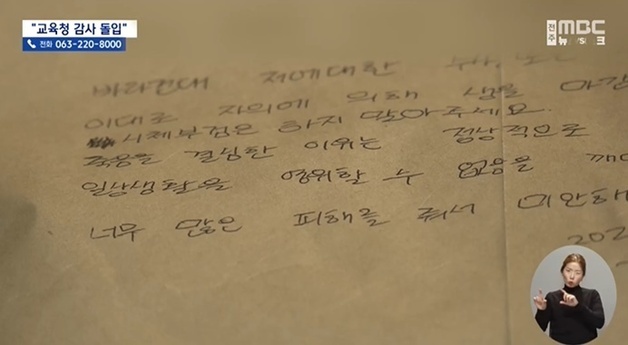 "교육청 감사 돌입"
전화 063-220-8000
전주 MBC
바라건대 저에대한
이대로 자의에 의해 생을 마감
시체부검은 하지 말아주세요.
죽음을 결심한 이유는 정상적으로
일상생활을 영위할 수 없음을 깨
너무 많은 피해를 줘서 미안해
202